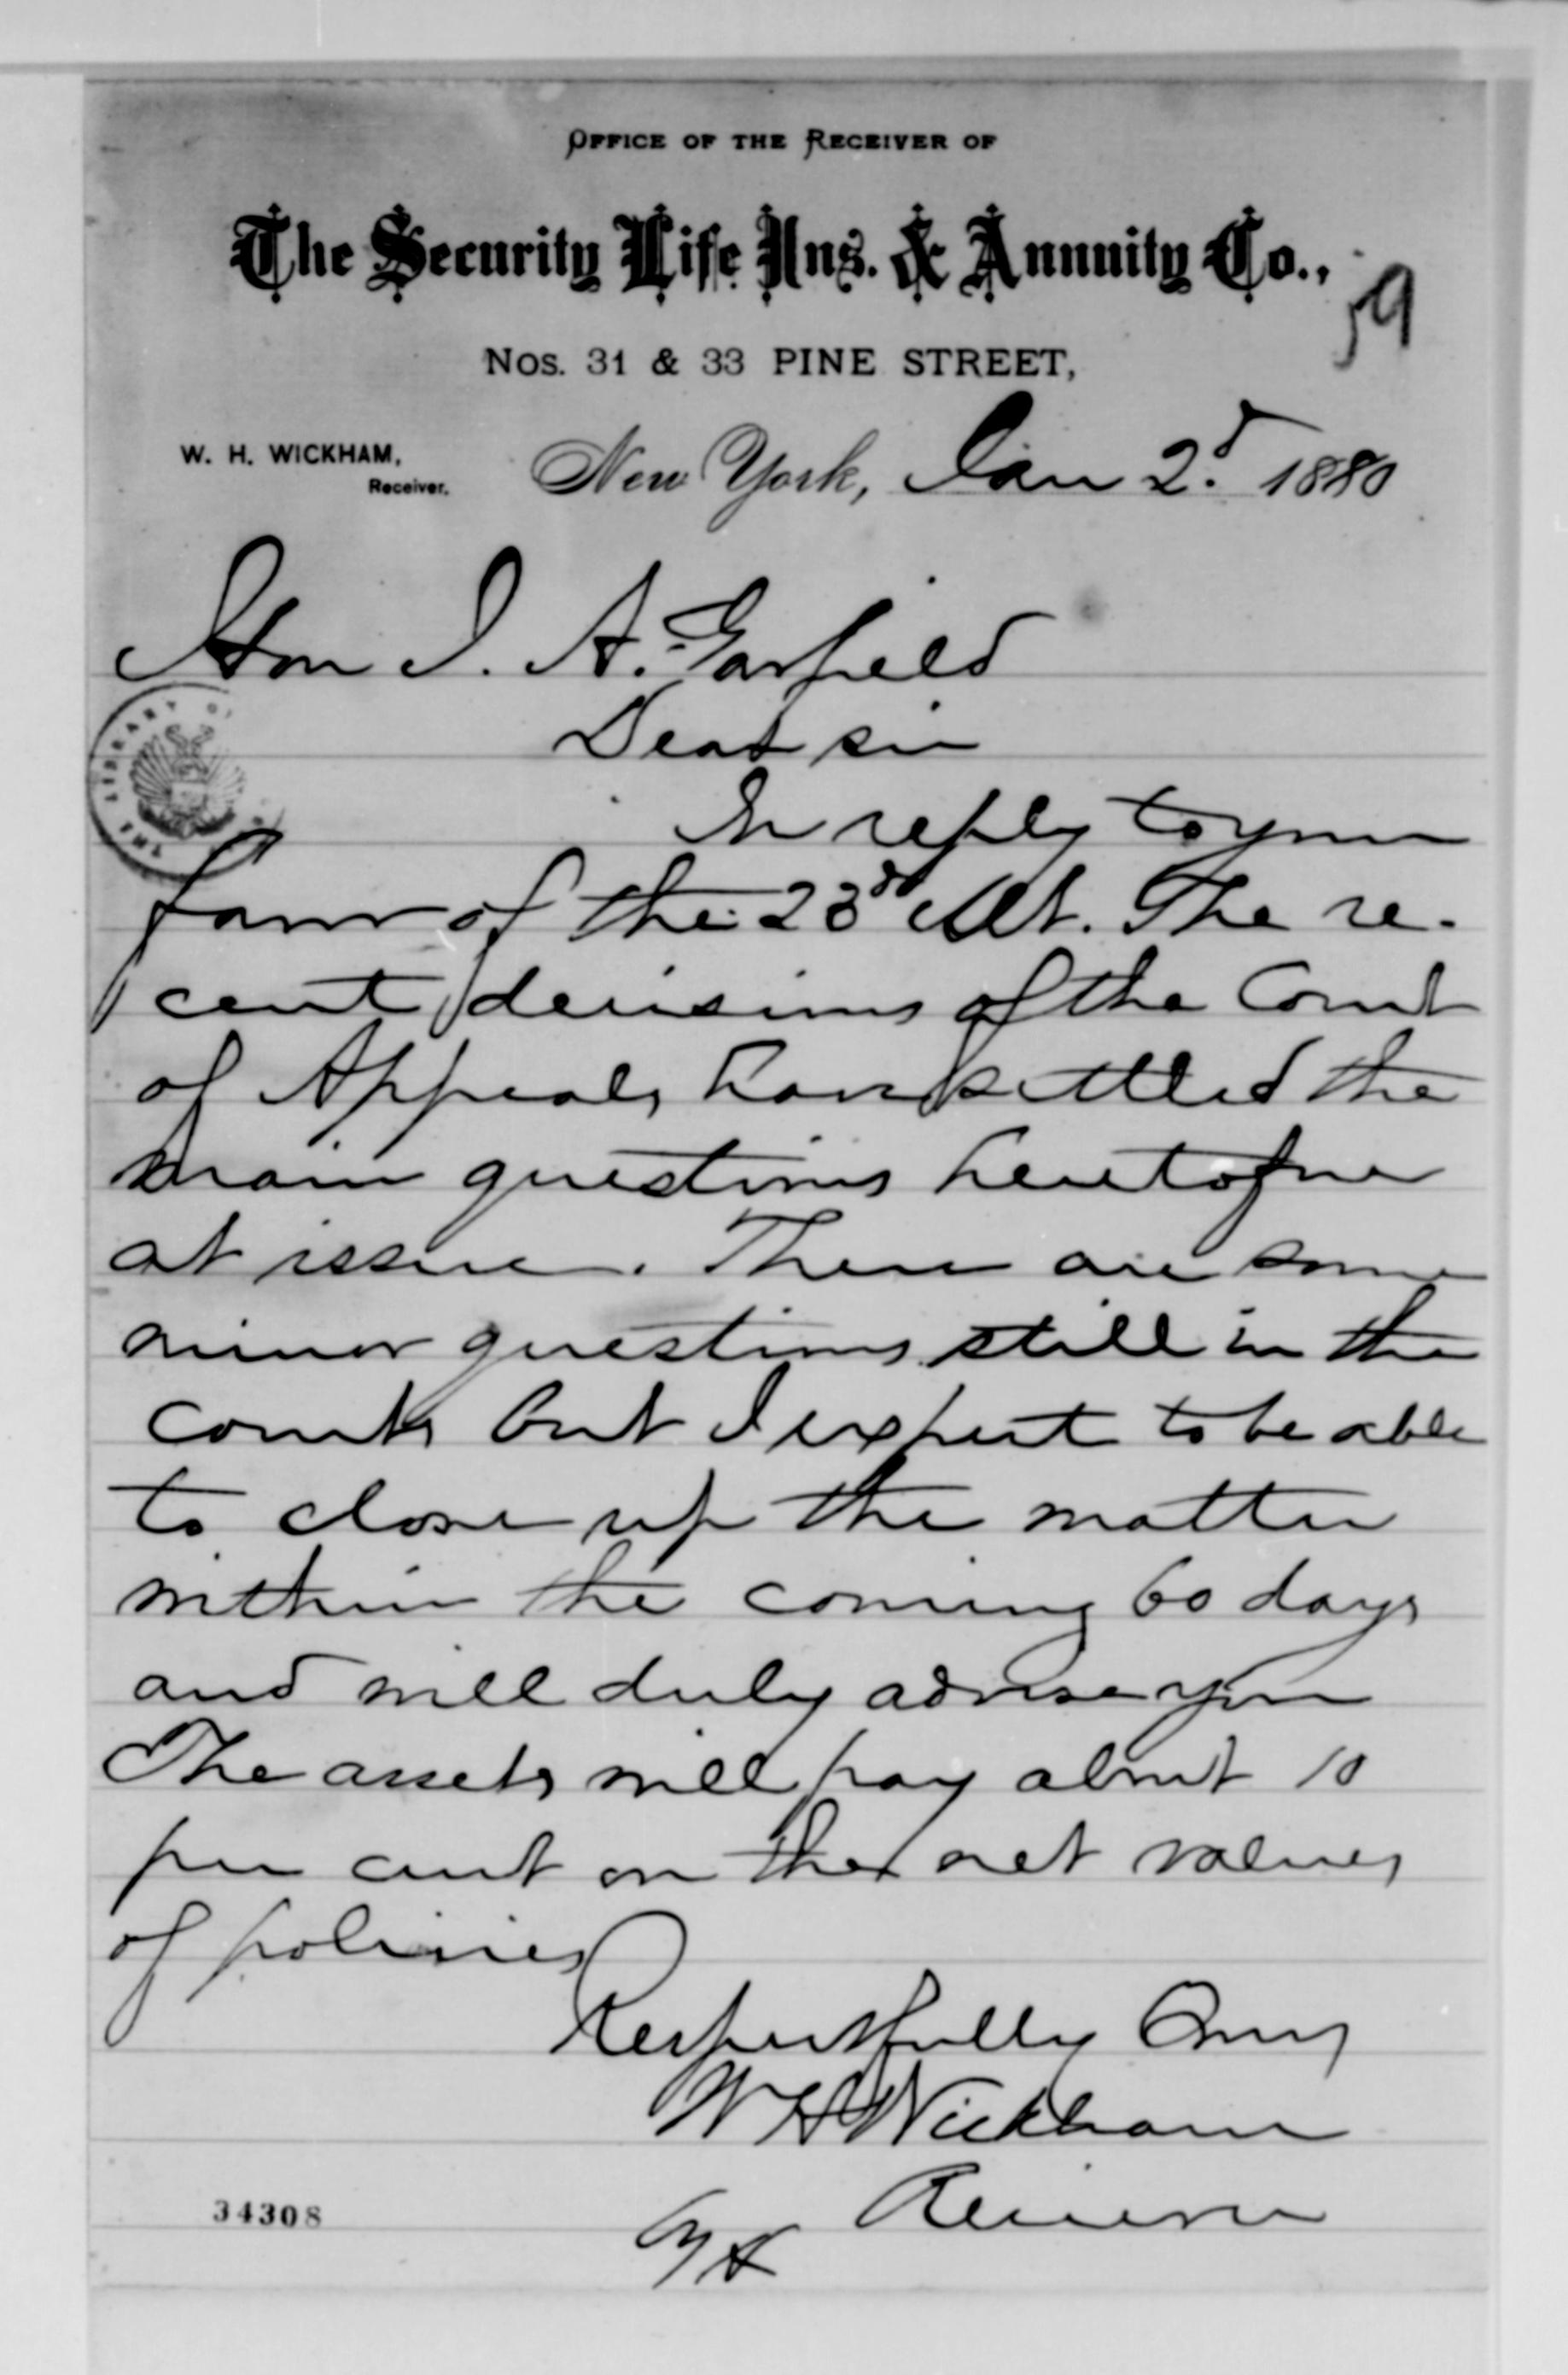 OFFICE OF THE RECEIVER OF
The Security Life Ins. & Annuity Co.,
59
Nos. 31 & 33 PINE STREET,
W. H. WICKHAM,
Receiver.
New York, Jan 2d 1880
Hon J. A. Garfield
Dear sir
In reply to your
favor of the 23d ult. The re-
cent decisions of the Court
of Appeals have settled the
main questions heretofore
at issue. There are some
minor questions still in the
courts but I expect to be able
to close up the matter
within the coming 60 days
and will duly advise you
The assets will pay about 10
per cent on the net values
of policies
Respectfully Yours
W H Wickham
Receiver
THE LIBRARY OF
34308